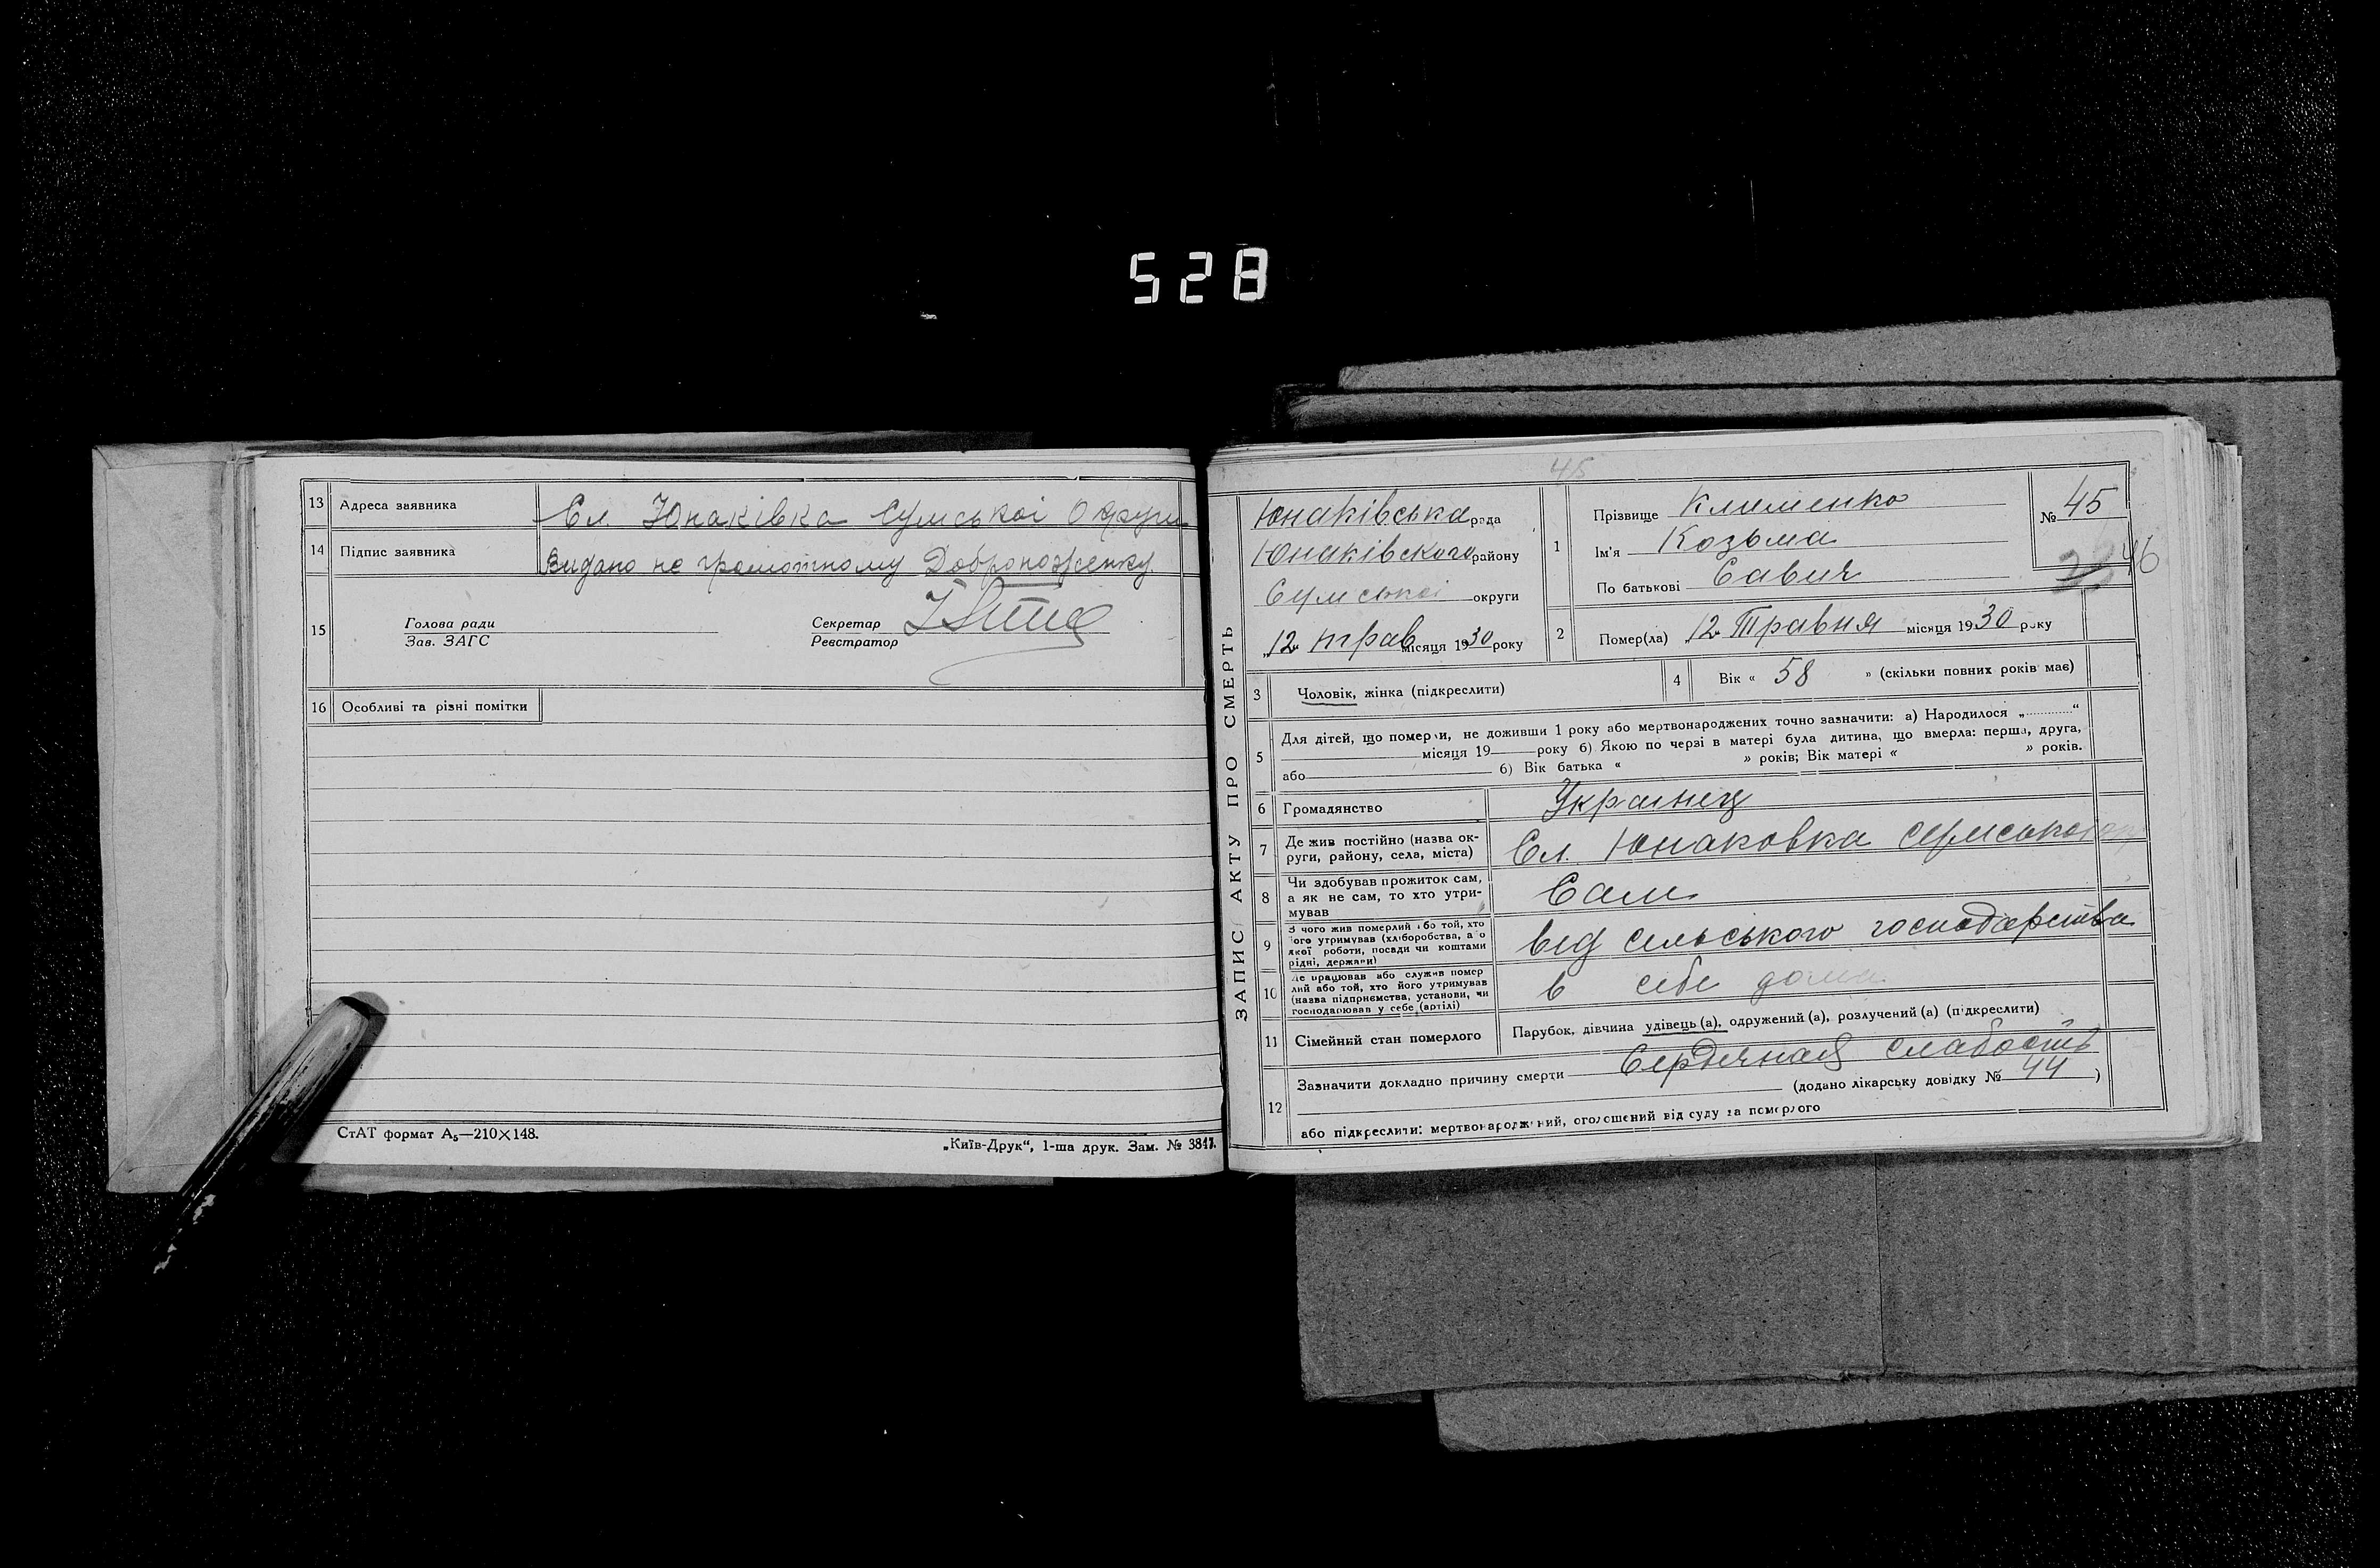 528
13 Адреса заявника Сл. Юнаківка Сумської Округи
14 Підпис заявника Видано не грамотному Доброножженку
15 Голова ради
Зав. ЗАГС
Секретар
Реєстратор
16 Особливі та різні помітки
СтАТ формат А₅—210×148.
„Київ-Друк“, 1-ша друк. Зам. № 3817.
45
ЗАПИС АКТУ ПРО СМЕРТЬ
Юнаківська рада
Юнаківского району
Сумської округи
„12“ трав місяця 1930 року
1 Прізвище Клименко
Ім'я Козьма
По батькові Савич
№ 45
46
2 Помер(ла) „12“ Травня місяця 1930 року
3 Чоловік, жінка (підкреслити)
4 Вік « 58 » (скільки повних років має)
5 Для дітей, що померли, не доживши 1 року або мертвонароджених точно зазначити: а) Народилося „............“
місяця 19 року б) Якою по черзі в матері була дитина, що вмерла: перша, друга,
або б) Вік батька « » років; Вік матері « » років.
6 Громадянство Українец
7 Де жив постійно (назва ок-
руги, району, села, міста) Сл. Юнаковка Сумської
8 Чи здобував прожиток сам,
а як не сам, то хто утри-
мував Сам
9 З чого жив померлий або той, хто
його утримував (хліборобства, або
якої роботи, посади чи коштами
рідні, держави) від сельського господарства
10 Де працював або служив помер
лий або той, хто його утримував
(назва підприємства, установи, чи
господарював у себе (артілі) в себе дома
11 Сімейний стан померлого Парубок, дівчина удівець (а), одружений (а), розлучений (а) (підкреслити)
12 Зазначити докладно причину смерти Сердечная слабость
(додано лікарську довідку № 44 )
або підкреслити: мертвонароджений, оголошений від суду за померлого